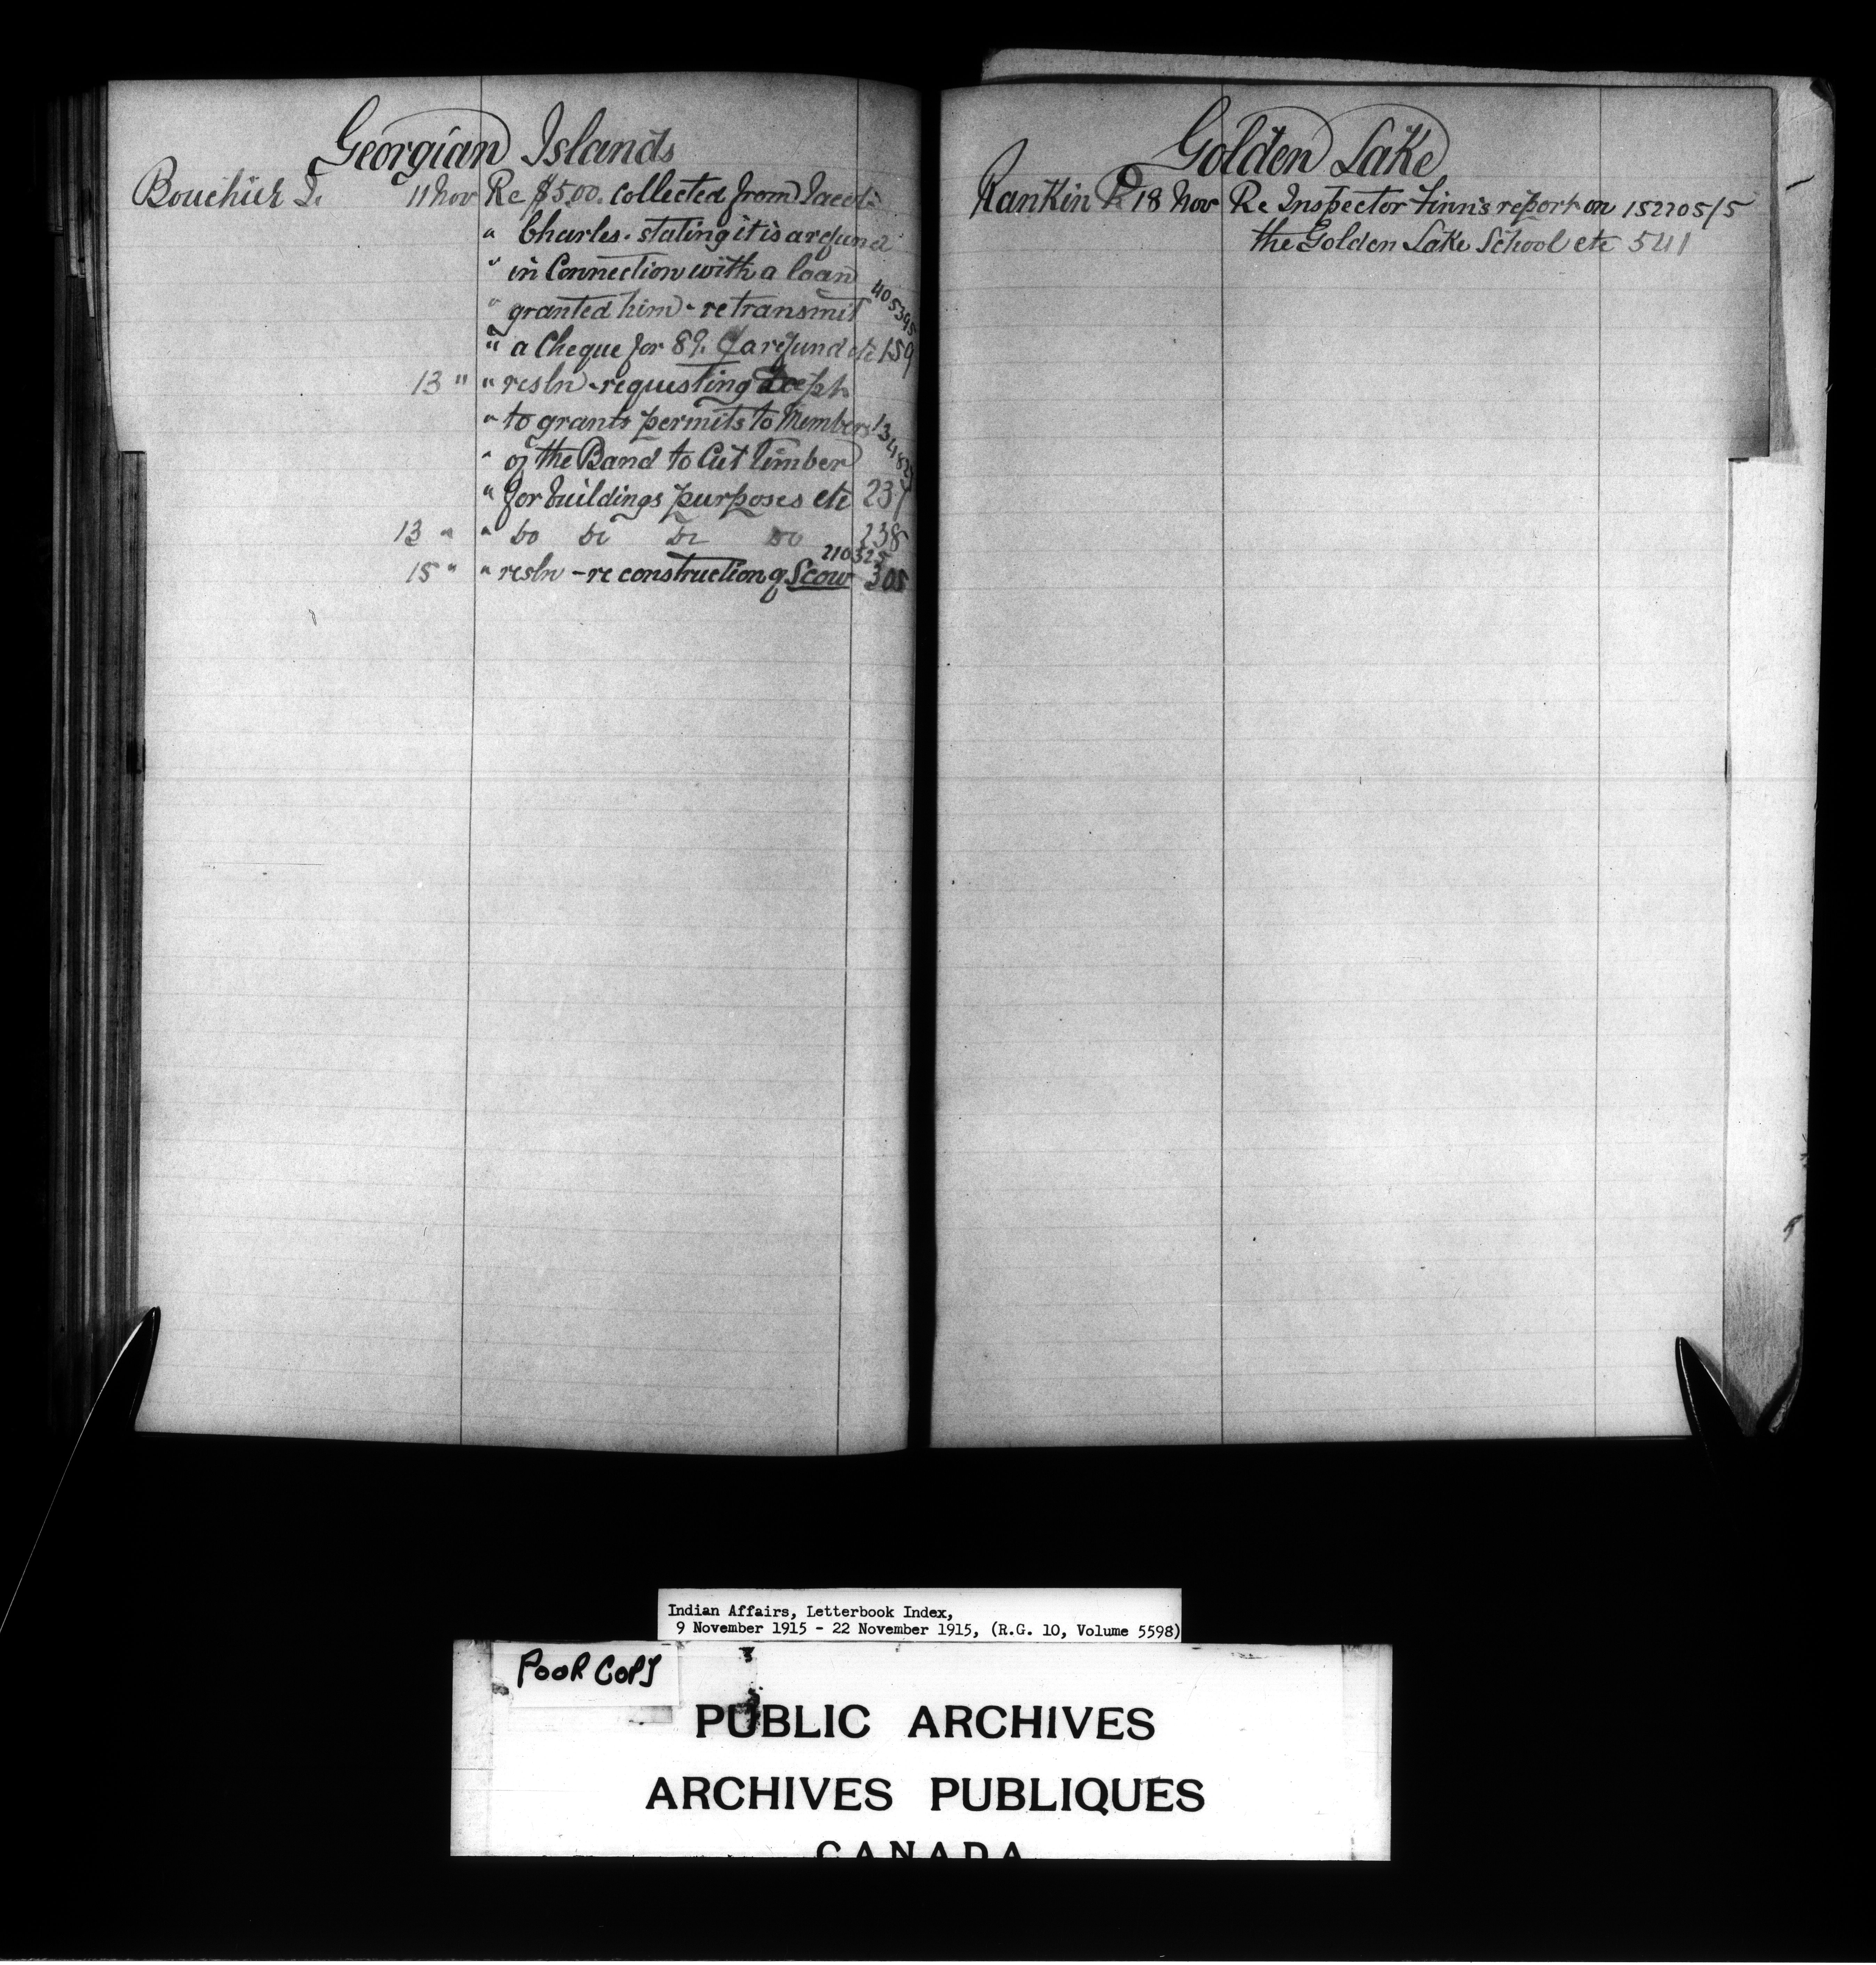 Georgian Islands
11 Nov Re $5.00. collected from Jacob
" Charles. stating it is a refund
" in Connection with a loan
" granted him - re transmit 405395
" a Cheque for 89. a refund etc 159
13 " " resln - requesting Dept
" to grants permits to Members
" of the Band to Cut Timber
" for buildings purposes etc 237
13 " " Do Do Do Do 238
210325
15 " " resln - re construction of Scow 305
Golden Lake
Rankin R 18 Nov Re Inspector Finn's report on 152205/5
the Golden Lake School etc 541
Indian Affairs, Letterbook Index,
9 November 1915 - 22 November 1915, (R.G. 10, Volume 5598)
POOR COPY
PUBLIC ARCHIVES
ARCHIVES PUBLIQUES
CANADA